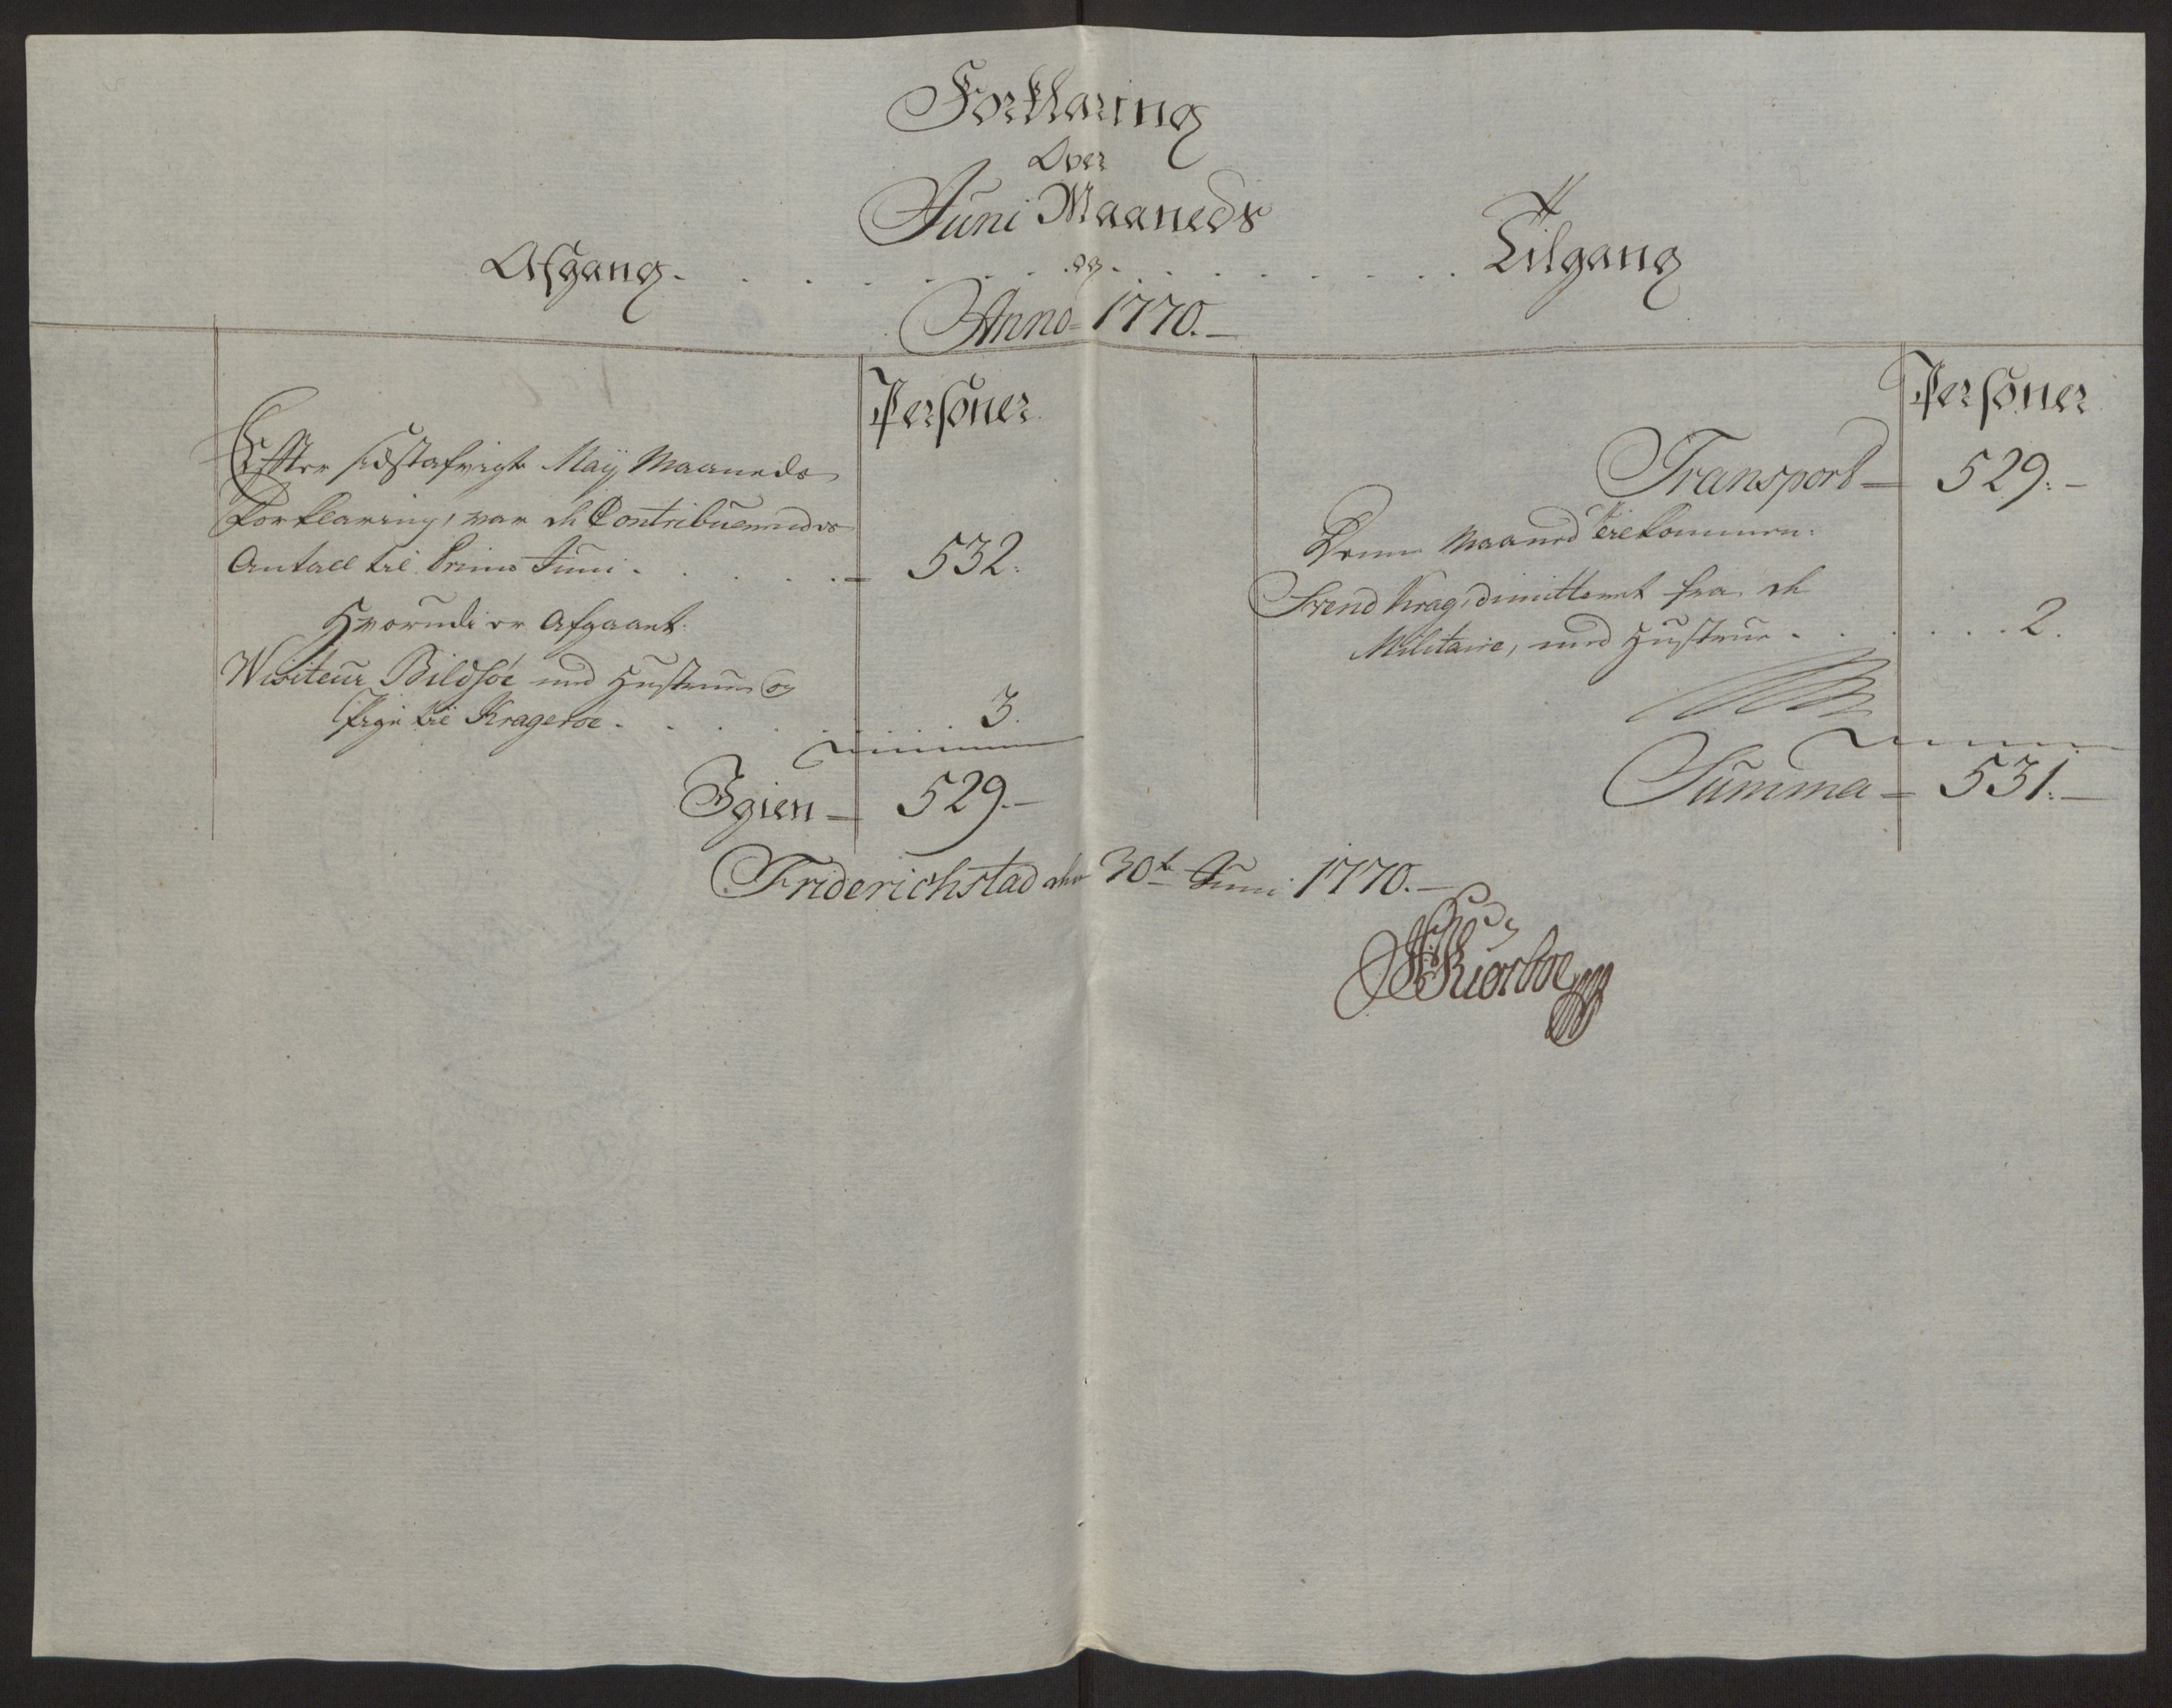 Forklaring
Over
Juni Maaneds
Afgang. . . . . . og . . . . . . Tilgang
Anno 1770.
Personer
Efter sidstafvigte Maÿ Maaneds
Forklaring, var de Contribuerendes
Antall til Primo Juni . . . . 532.
Hvorudi er Afgaaet.
Visiteur Bildsøe med Hustrue og
Pige til Krageroe . . . . . 3.
Igien 529.
Personer
Transport 529.
Denne Maaned tilkommen.
Svend Krag, dimitteret fra de
Militaire, med Hustrue . . . . . 2.
Summa 531.
Friderichstad den 30te Juni 1770.